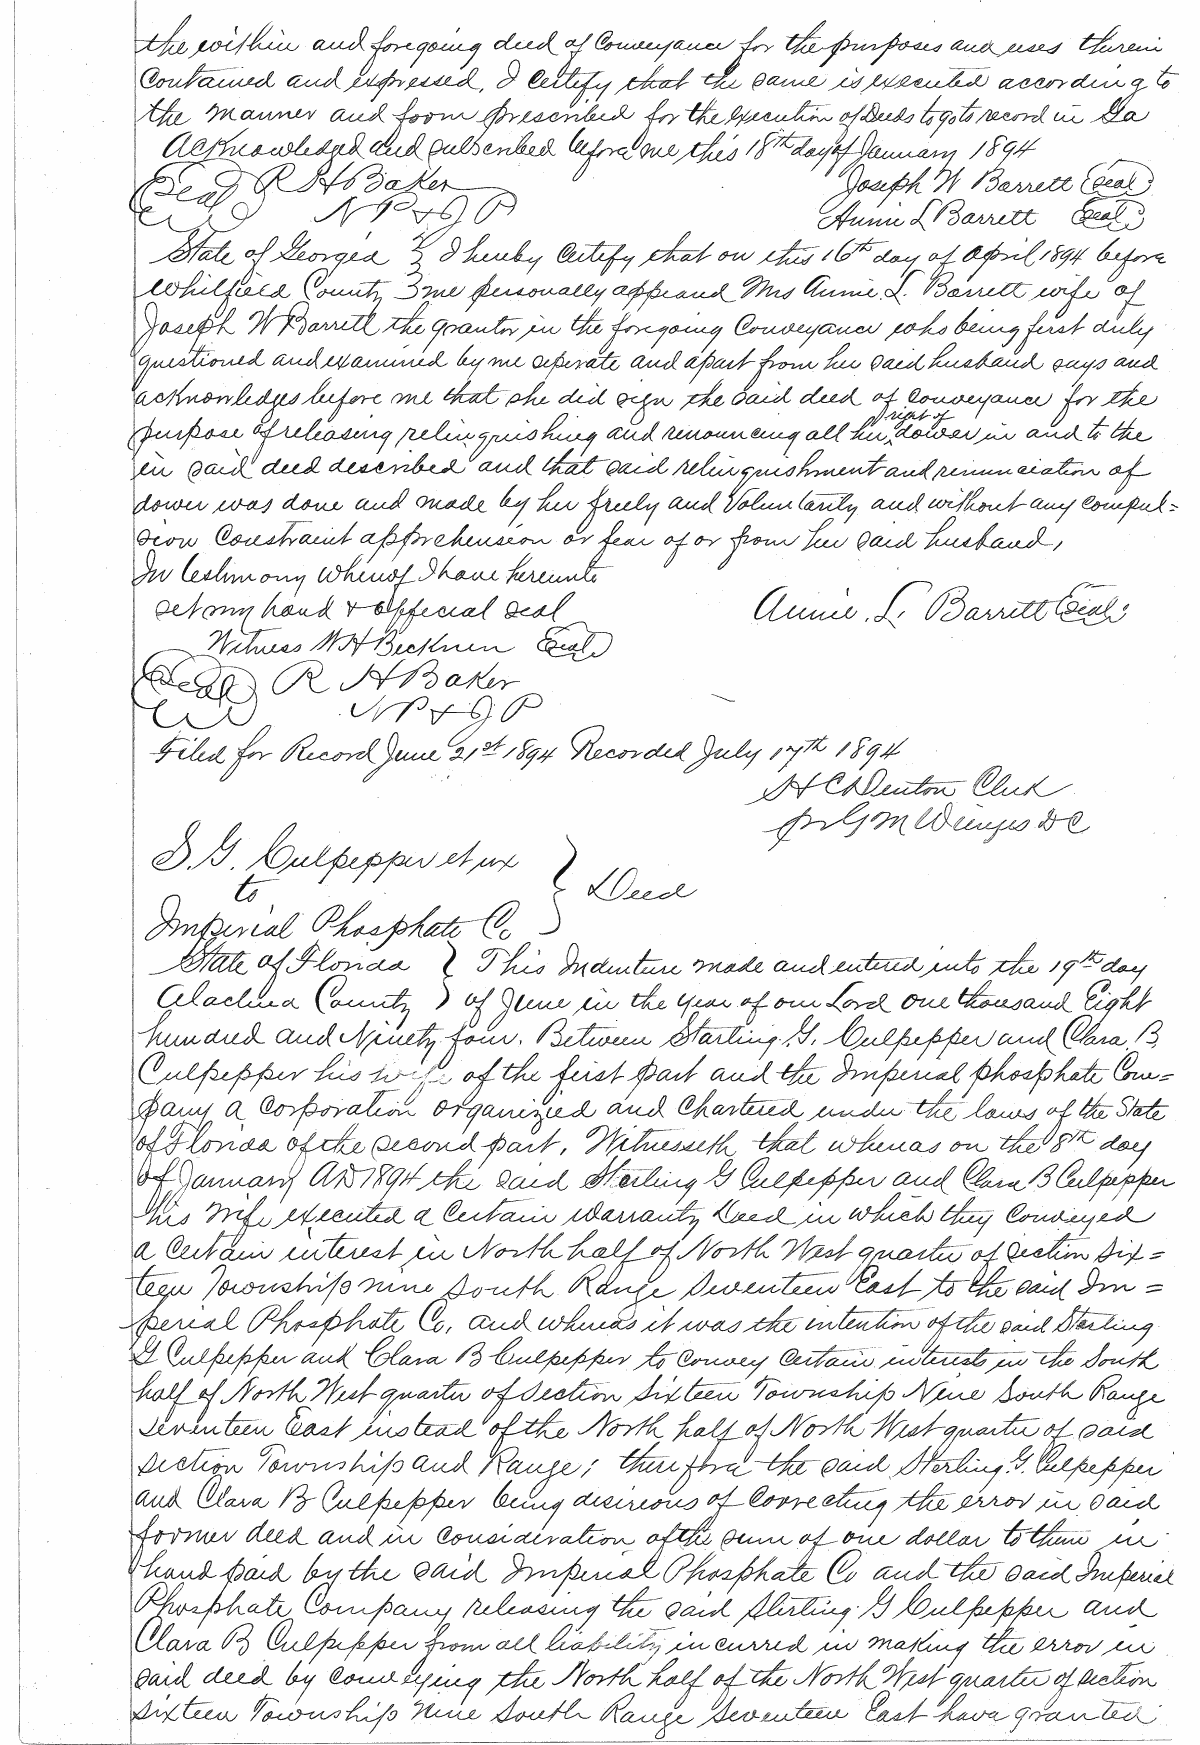 the within and foregoing deed of Conveyance for the purposes and uses therein
Contained and expressed, I Certify that the same is executed according to
the manner and form prescribed for the execution of Deeds to go to record in Ga
Acknowledged and subscribed before me this 18th day of January 1894
Seal R H Baker Joseph W Barrett Seal
N P & J P Annie L Barrett Seal
State of Georgia } I hereby Certify that on this 16th day of April 1894 before
Whitfield County } me personally appeard Mrs Annie L. Barrett wife of
Joseph W Barrett the grantor in the foregoing Conveyance who being first duly
questioned and examined by me seperate and apart from her said husband says and
acknowledges before me that she did sign the said deed of Conveyance for the
purpose of releasing relinquishing and renouncing all her right of dower in and to the
in said deed described and that said relinquishment and renunciation of
dower was done and made by her freely and Voluntarily and without any compul=
sion Constraint apprehension or fear of or from her said husband,
In testimony whereof I have hereunto
set my hand & official seal Annie. L. Barrett Seal
Witness W H Becknen Seal
Seal R H Baker
N P & J P
Filed for Record June 21st 1894 Recorded July 17th 1894
H C Denton Clerk
pr G M D C
S. G. Culpepper et ux
to } Deed
Imperial Phosphate Co
State of Florida } This Indenture made and entered into the 19th day
Alachua County } of June in the year of our Lord one thousand Eight
hundred and Ninety four. Between Starling. G. Culpepper and Clara B.
Culpepper his wife of the first part and the Imperial phosphate Com=
pany a Corporation organizied and Chartered under the laws of the State
of Florida of the second part, Witnesseth that whereas on the 8th day
of January AD 1894 the said Sterling G Culpepper and Clara B Culpepper
his Wife executed a Certain warranty Deed in which they Conveyed
a Certain interest in North half of North West quarter of Section Six=
teen Township nine South Range Seventeen East to the said Im=
perial Phosphate Co, and whereas it was the intention of the said Starling
G Culpepper and Clara B Culpepper to Convey Certain interests in the South
half of North West quarter of Section Sixteen Township Nine South Range
Seventeen East instead of the North half of North West quarter of said
Section Township and Range; therefore the said Sterling. G. Culpepper
and Clara B Culpepper being disireous of Correcting the error in said
former deed and in consideration of the sum of one dollar to them in
hand paid by the said Imperial Phosphate Co and the said Imperial
Phosphate Company releasing the said Sterling G Culpepper and
Clara B Culpepper from all liability incurred in making the error in
said deed by conveying the North half of the North West quarter of Section
Sixteen Township Nine South Range Seventeen East have granted